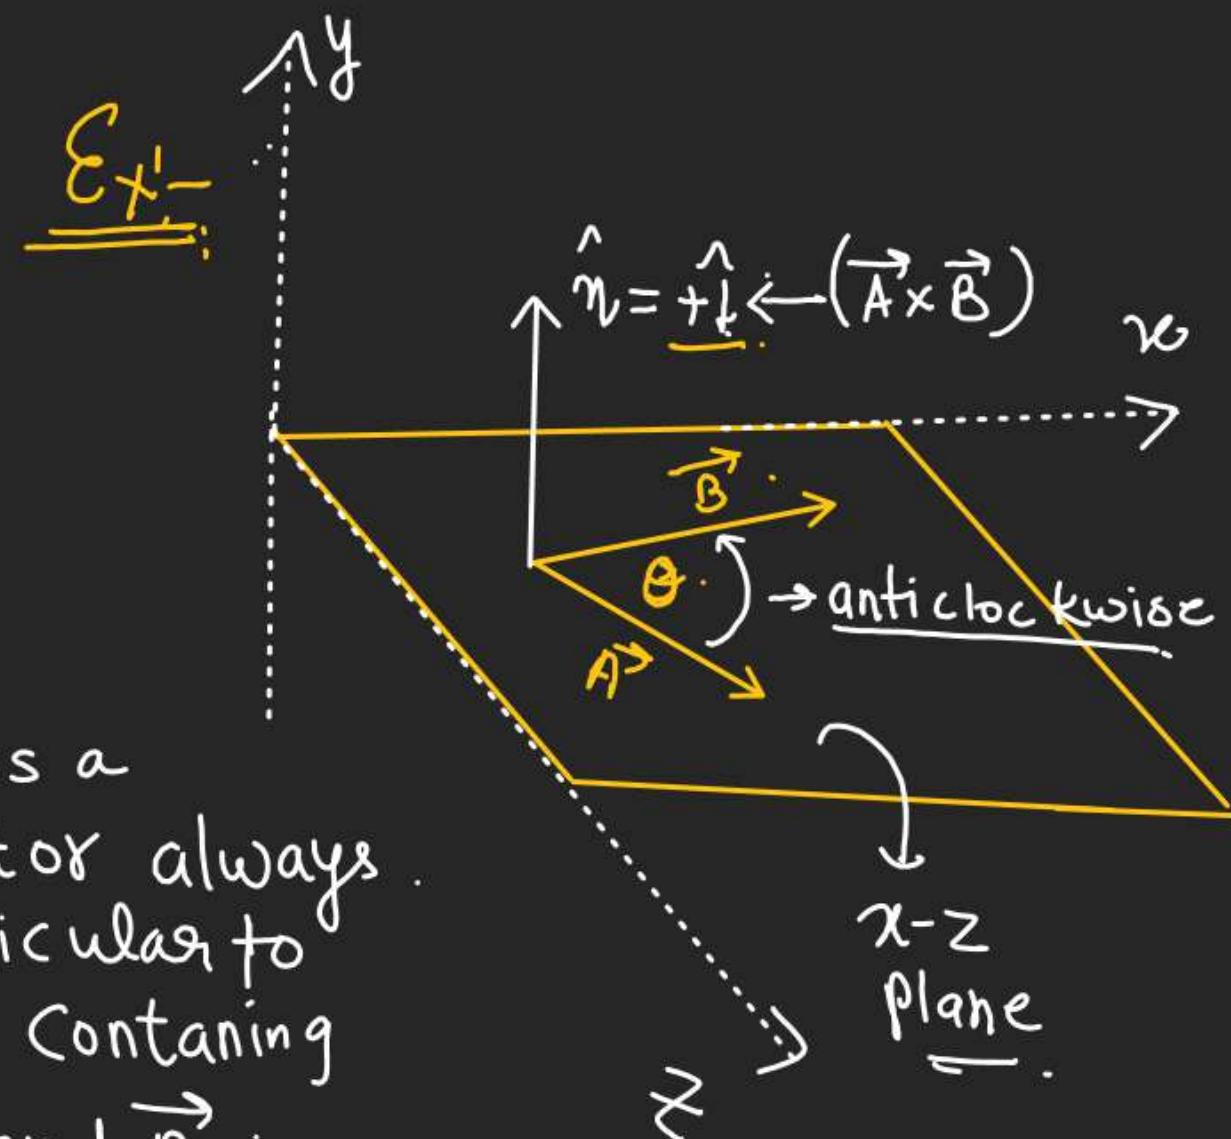 y
Ex:-
n̂ = +ĵ ← (A⃗ × B⃗)
x
B⃗
θ
→ anticlockwise
A⃗
s a
tor always.
icular to
contaning
x-z
plane
z